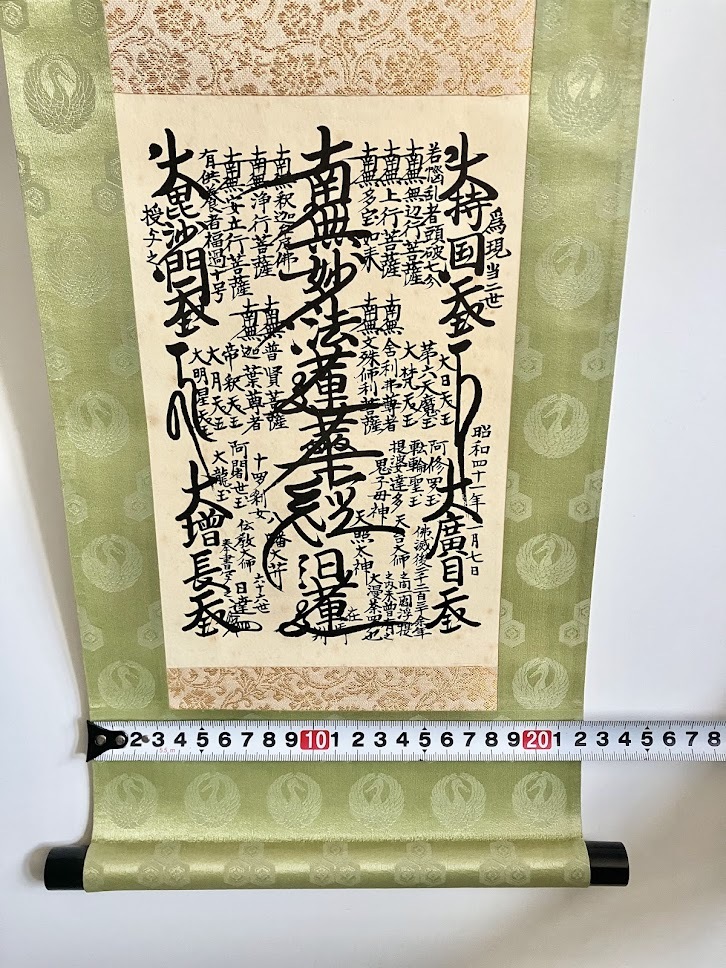 為現当二世
大持国天王
若悩乱者頭破七分
南無無辺行菩薩
南無上行菩薩
南無多宝如来
南無妙法蓮華経 日蓮
在御判
南無釈迦牟尼佛
南無浄行菩薩
南無安立行菩薩
有供養者福過十号
大毘沙門天王
授与之
大日天王
第六天魔王
大梵天王
舎利弗尊者
南無文殊師利菩薩
南無普賢菩薩
南無迦葉尊者
帝釈天王
大月天王
大明星天王
昭和四十一年一月七日
大廣目天王
阿修羅王
転輪聖王
提婆達多
鬼子母神
十羅刹女
阿闍世王
大龍王
佛滅後二千二百三十余年
之間一閻浮提
之内未曽有之
大漫荼羅也
天台大師
天照太神
八幡大菩薩
伝教大師
六十六世
日達
奉書写之
大増長天王
10 20